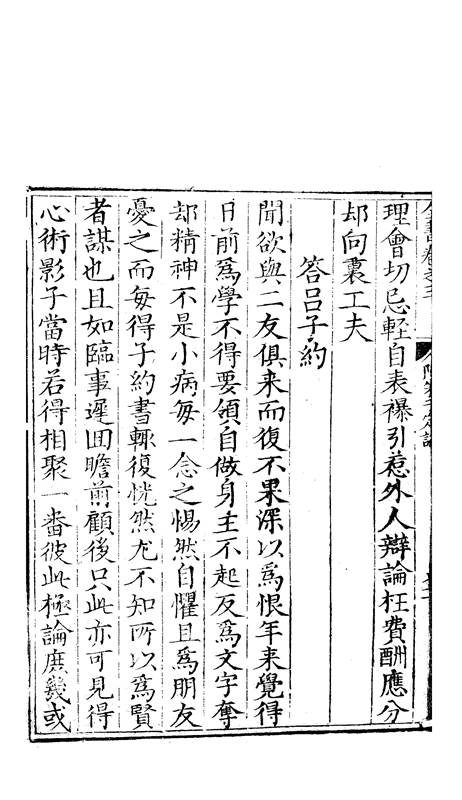 理會切忌輕自表襮引惹外人辯論枉費酬應分
却向裏工夫
答呂子約
聞欲與二友俱来而復不果深以爲恨年来覺得
日前爲學不得要領自做身主不起反爲文字奪
却精神不是小病每一念之惕然自懼且爲朋友
憂之而每得子約書輙復恍然尤不知所以爲賢
者謀也且如臨事遲囬瞻前顧後只此亦可見得
心術影子當時若得相聚一番彼此極論庶幾或